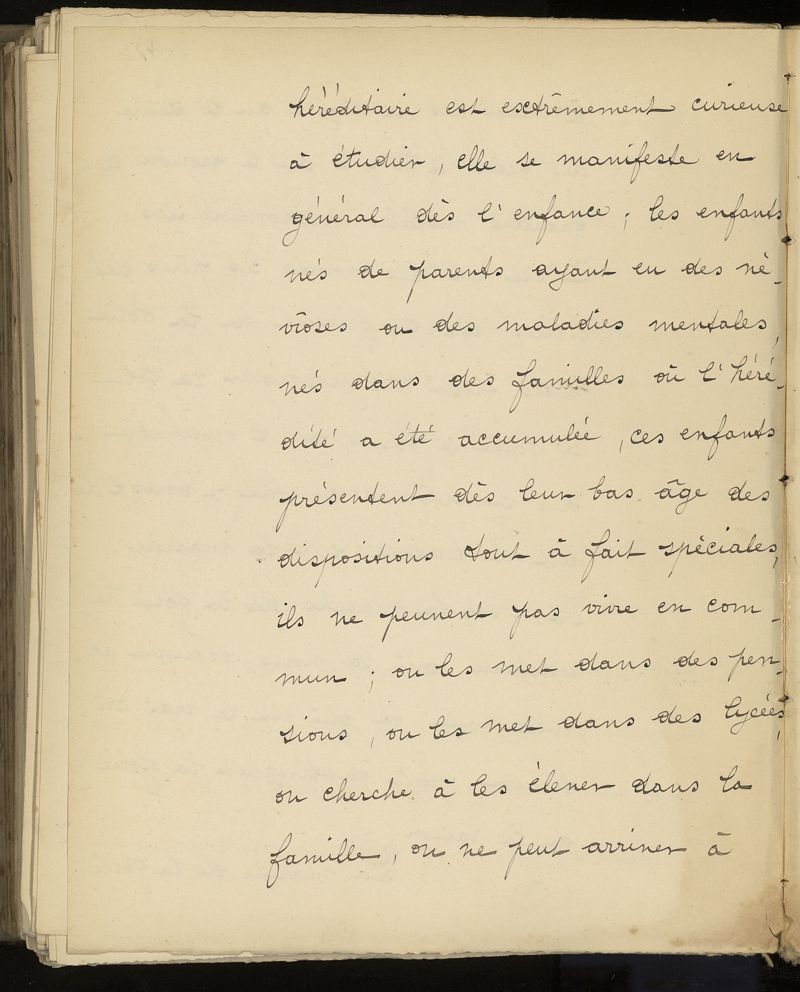 héréditaire est extrêmement curieuse
à étudier, elle se manifeste en
général dès l'enfance ; les enfants
nés de parents ayant eu des né-
vroses ou des maladies mentales,
nés dans des familles où l'héré-
dité a été accumulée, ces enfants
présentent dès leur bas âge des
dispositions tout à fait spéciales,
ils ne peuvent pas vivre en com-
mun ; on les met dans des pen-
sions, on les met dans des lycées,
on cherche à les élever dans la
famille, on ne peut arriver à